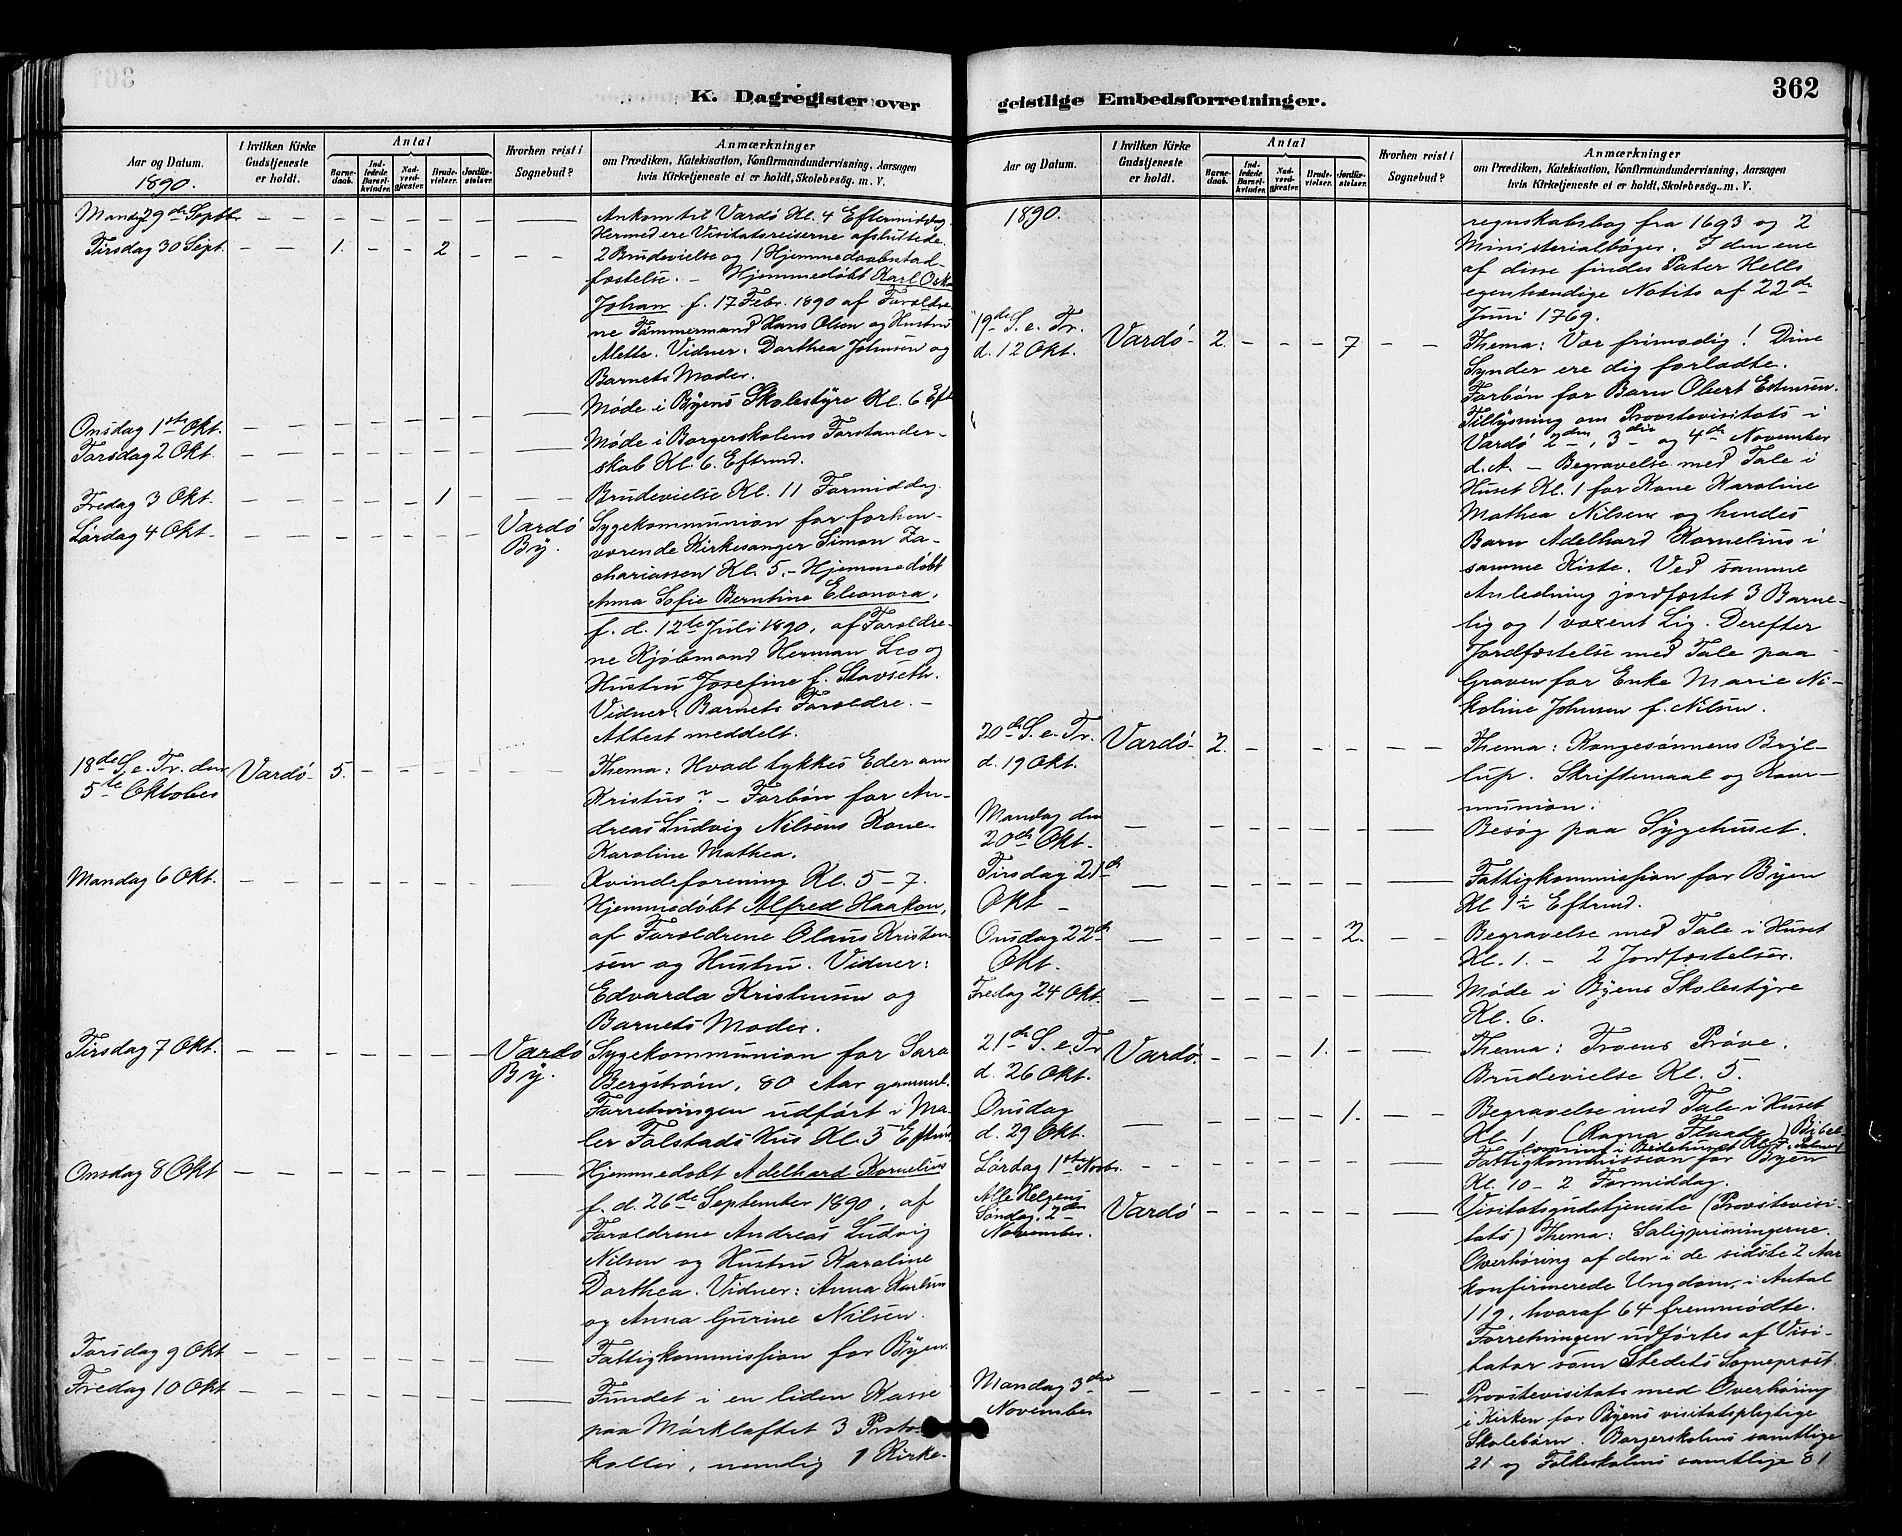 K. Dagregister over
Aar og Datum.
1890.
I hvilken Kirke Gudstjeneste er holdt.
Antal
Barnedaab.
Indledede Barselkvinder.
Nadverdgjester.
Brudevielser.
Jordfæstelser.
Hvorhen reist i Sognebud?
Anmærkninger
om Prædiken, Katekisation, Konfirmandundervisning, Aarsagen
hvis Kirketjeneste ei er holdt, Skolebesøg. m. V.
Mandag 29de Septbr. – – – – – – – – – Ankom til Vardö Kl. 4 Eftermiddag
Hermed ere Visitatsreiserne afsluttede.
Tirsdag 30 Sept. – – 1. – – 2 – – – 2 Brudevielse og 1 Hjemmedaabsstad-
fæstelse. – Hjemmedøbt Karl Oskar
Johan f. 17 Febr. 1890 af Foræld-
ne Tømmermand Hans Olsen og Hustru
Mette. Vidner: Dorthea Johnsen og
Barnets Moder.
Møde i Byens Skolestyre Kl. 6 Eft
Onsdag 1ste Okt. – – – – – – – —
Torsdag 2 Okt. – – – – – – – — Møde i Borgerskolens Forstander-
skab Kl. 6. Eftmd.
Fredag 3 Okt. – – – – – 1 – – – Brudevielse Kl. 11 Formiddag.
Lørdag 4 Okt. – – – – – – – Vardö
By.
Sygekommunion for forhen-
værende Kirkesanger Simon Za-
chariassen Kl. 5. – Hjemmedøbt
Anna Sofie Berntine Eleonora,
f. d. 12te Juli 1890, af Foræld-
ne Kjøbmand Herman Leo og
Hustru Josefine f. Stavseth.
Vidner: Barnets Forældre. –
Attest meddelt.
18de S. e. Tr. den
5te Oktober
Vardö – 5. – – – – – Thema: Hvad tykkes Eder om
Kristus? – Forbøn for An-
dreas Ludvig Nilsens Kone
Karoline Mathea.
Mandag 6 Okt. – – – – – – – — Kvindeforening Kl. 5–7.
Hjemmedøbt Alfred Haakon,
af Forældrene Olaus Kristen-
sen og Hustru. Vidner:
Edvarda Kristensen og
Barnets Moder.
Tirsdag 7 Okt. – – – – – – – Vardö
By.
Sygekommunion for Sara
Bergstrøm, 80 Aar gammel.
Forretningen udført i Ma-
ler Falstads Hus Kl. 5 Eftm
Onsdag 8 Okt – – – – – – – – – Hjemmedøbt Adelhard Kornelius
f. d. 26de September 1890, af
Forældrene Andreas Ludvig
Nilsen og Hustru Karoline
Dorthea. Vidner: Anna Karlsen
og Anna Gurine Nilsen.
Torsdag 9 Okt – – – – – – – — Fattigkommission for Byen.
Fredag 10 Okt – – – – – – – — Fundet i en liden Kasse
paa Mørkloftet 3 Proto-
koller, nemlig 1 Kirke-
geistlige Embedsforretninger.
362
Aar og Datum.
I hvilken Kirke Gudstjeneste er holdt.
Antal
Barnedaab.
Indledede Barselkvinder.
Nadverdgjester.
Brudevielser.
Jordfæstelser.
Hvorhen reist i Sognebud?
Anmærkninger
om Prædiken, Katekisation, Konfirmandundervisning, Aarsagen
hvis Kirketjeneste ei er holdt, Skolebesøg. m. V.
1890.
regnskabsbog fra 1693 og 2
Ministerialbøger. I den ene
af disse findes Pater Hells
egenhændige Notits af 22de
Juni 1769.
19de S. e. Tr.
d. 12 Okt.
Vardö – 2. – – – 7 – – Thema: Vær frimodig! Dine
Synder ere dig forladte.
Forbøn for Barn Obert Estensen.
Tillysning om Provstevisitats i
Vardö 2den, 3die og 4de November
d. A. – Begravelse med Tale i
Huset Kl. 1 for Kone Karoline
Mathea Nilsen og hendes
Barn Adelhard Kornelius i
samme Kiste. Ved samme
Anledning jordfæstet 3 Barne-
lig og 1 voxent Lig. Derefter
Jordfæstelse med Tale paa
Graven for Enke Marie Ni-
koline Johnsen f. Nilsen.
20de S. e. Tr.
d. 19 Okt.
Vardö – 2. – – – – – – Thema: Kongesønnens Bryl-
lup. Skriftemaal og Kom-
munion.
Mandag den
20de Okt.
— – – – – – — Besøg paa Sygehuset.
Tirsdag 21de
Okt –
— – – – – – — Fattigkommission for Byen
Kl 1½ Eftmd.
Onsdag 22de
Okt.
— – – – – 2. – – Begravelse med Tale i Huset
Kl. 1. – 2 Jordfæstelser.
Fredag 24 Okt. — – – – – – — Møde i Byens Skolestyre
Kl. 6.
21de S. e. Tr
d. 26 Okt.
Vardö. – – – 1. – — Thema: Troens Prøve.
Brudevielse Kl. 5.
Onsdag
d. 29 Okt.
— – – – – 1. – – Begravelse med Tale i Huset
Kl 1 (Ragna Flaade) Bibel-
læsning i Bedehuset Kl. 7.
Lørdag 1ste Novbr. — – – – – – – – Fattigkommission for Byen
Kl. 10–2 Formiddag.
Alle Helgens
Søndag. 2den
November.
Vardö – – – – – — Visitatsgudstjeneste (Provstevisi-
tats) Thema: Saligprisningerne.
Overhøring af den i de sidste 2 Aar
konfirmerede Ungdom, i Antal
119, hvoraf 64 fremmødte.
Forretningen udførtes af Visi-
tator som Stedets Sogneprest.
Mandag 3die
November
— – – – – – – Provstevisitats med Overhøring
i Kirken for Byens visitatspligtige
Skolebørn. Borgerskolens samtlige
21 og Folkeskolens samtlige 81